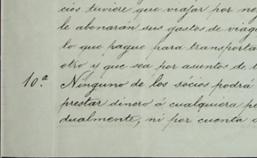 cios tuviere que viajar por ne
le abonarán sus gastos de viag
lo que pague para transporta
otro y que sea por asuntos de
10.ª Ninguno de los sócios podrá
prestar dinero á cualquiera pe
dualmente, ni por cuenta